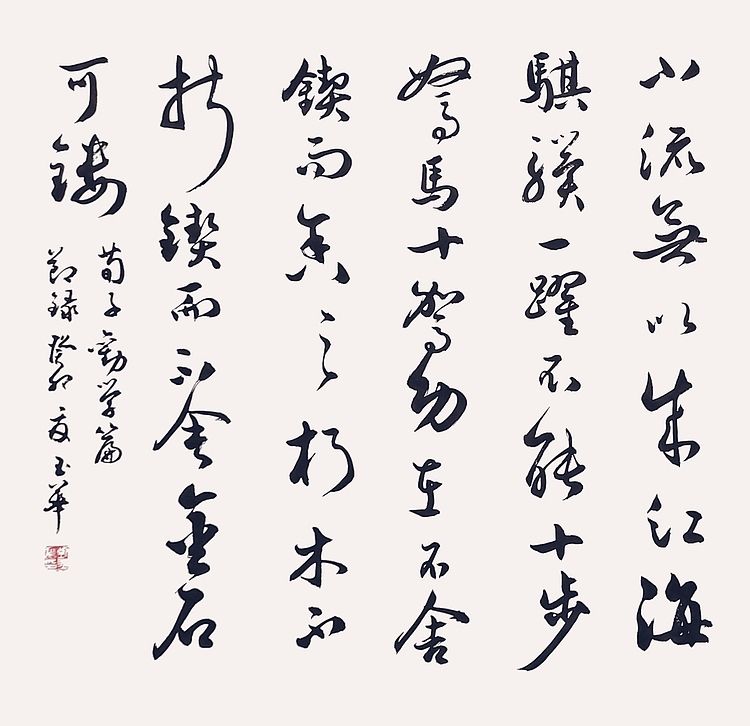 小流無以成江海
騏驥一躍不能十步
駑馬十駕功在不舍
鍥而舍之朽木不
折鍥而不舍金石
可鏤
荀子勸学篇
節録癸卯夏玉華